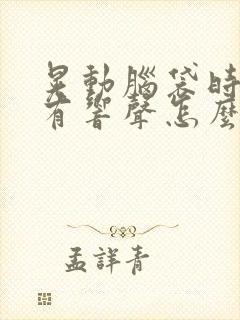 晃動腦袋時
有響聲怎麼
孟詳青